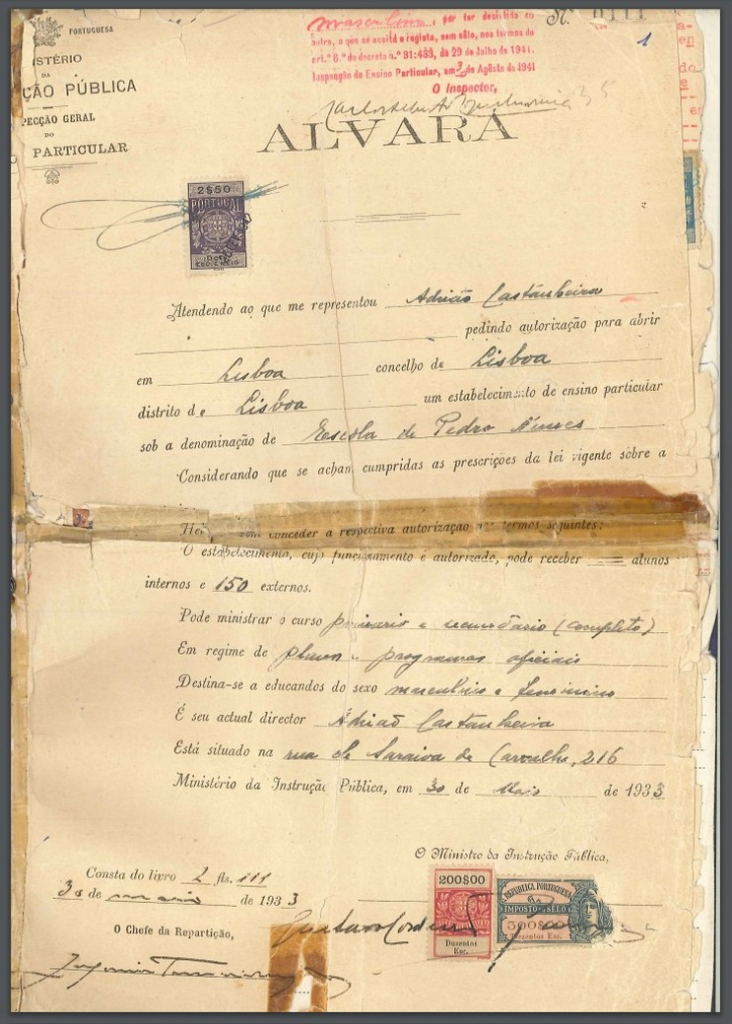 PORTUGUESA
ISTÉRIO
DA
ÇÃO PÚBLICA
PECÇÃO GERAL
DO
PARTICULAR
Nº 0111
1
masculino, por ter desistido do
outro, o que se aceita e regista, sem sêlo, nos termos do
art.º 6.º do decreto n.º 31:433, de 29 de Julho de 1941.
Inspecção do Ensino Particular, em 3 de Agosto de 1941
O Inspector,
ALVARÁ
2$50
PORTUGAL
Atendendo ao que me representou Adrião Castanheira
pedindo autorização para abrir
em Lisboa concelho de Lisboa
distrito de Lisboa um estabelecimento de ensino particular
sob a denominação de Escola de Pedro Nunes
Considerando que se acham cumpridas as prescrições da lei vigente sôbre a
Hei conceder a respectiva autorização nos termos seguintes:
O estabelecimento, cujo funcionamento é autorizado, pode receber alunos
internos e 150 externos.
Pode ministrar o curso primario e secundário (completo)
Em regime de planos e programas oficiais
Destina-se a educandos do sexo masculino e feminino
É seu actual director Adrião Castanheira
Está situado na rua de Saraiva de Carvalho, 216
Ministério da Instrução Pública, em 30 de Maio de 1933
O Ministro da Instrução Pública,
Consta do livro 2 fls. 111
30 de maio de 1933
O Chefe da Repartição,
200$00
Duzentos
Esc.
REPUBLICA PORTUGUESA
IMPOSTO DO SÊLO
300$00
Trezentos Esc.